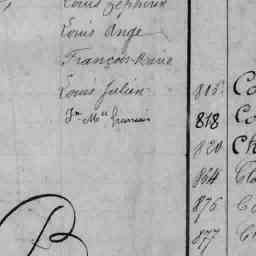 Louis Zéphirin
Louis Ange
François-Marie
Louis Julien
Jn Mie François
815 Co
818 Co
820 Ch
864
876 Co
877
B